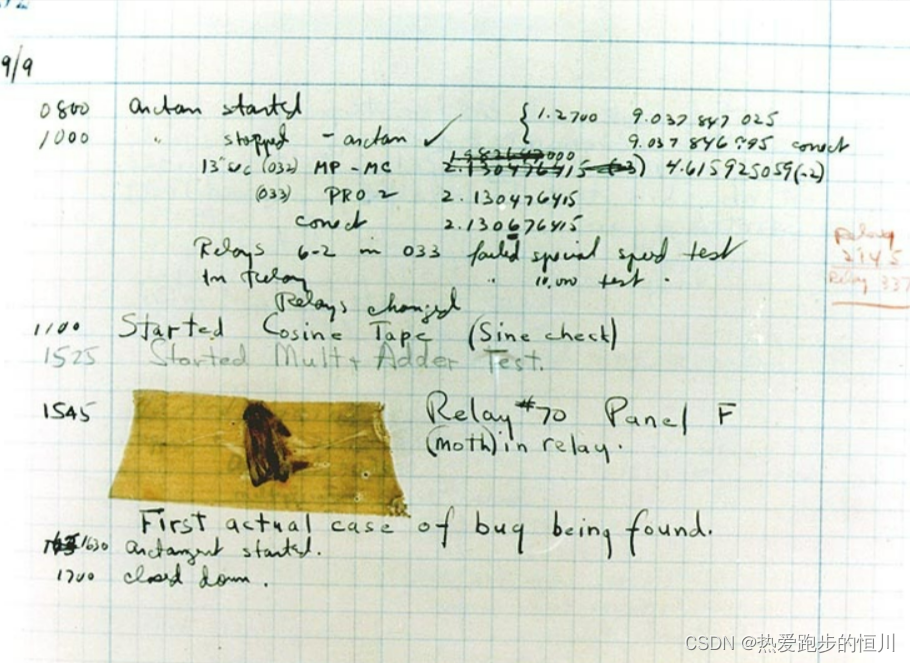 9/9
0800 arctan started { 1.2700 9.037 847 025
1000 " stopped - arctan ✓ 9.037 846 995 correct
13"uc (032) MP - MC 2.130476415 (-3) 4.615925059(-2)
(033) PRO 2 2.130476415
correct 2.130676415
Relays 6-2 in 033 failed special speed test
In Relay " 10,000 test .
Relays changed
Relay
2145
Relay 337
1100 Started Cosine Tape (Sine check)
1525 Started Mult + Adder Test.
1545 Relay #70 Panel F
(moth) in relay.
First actual case of bug being found.
1630 arctangent started.
1700 closed down .
CSDN @热爱跑步的恒川